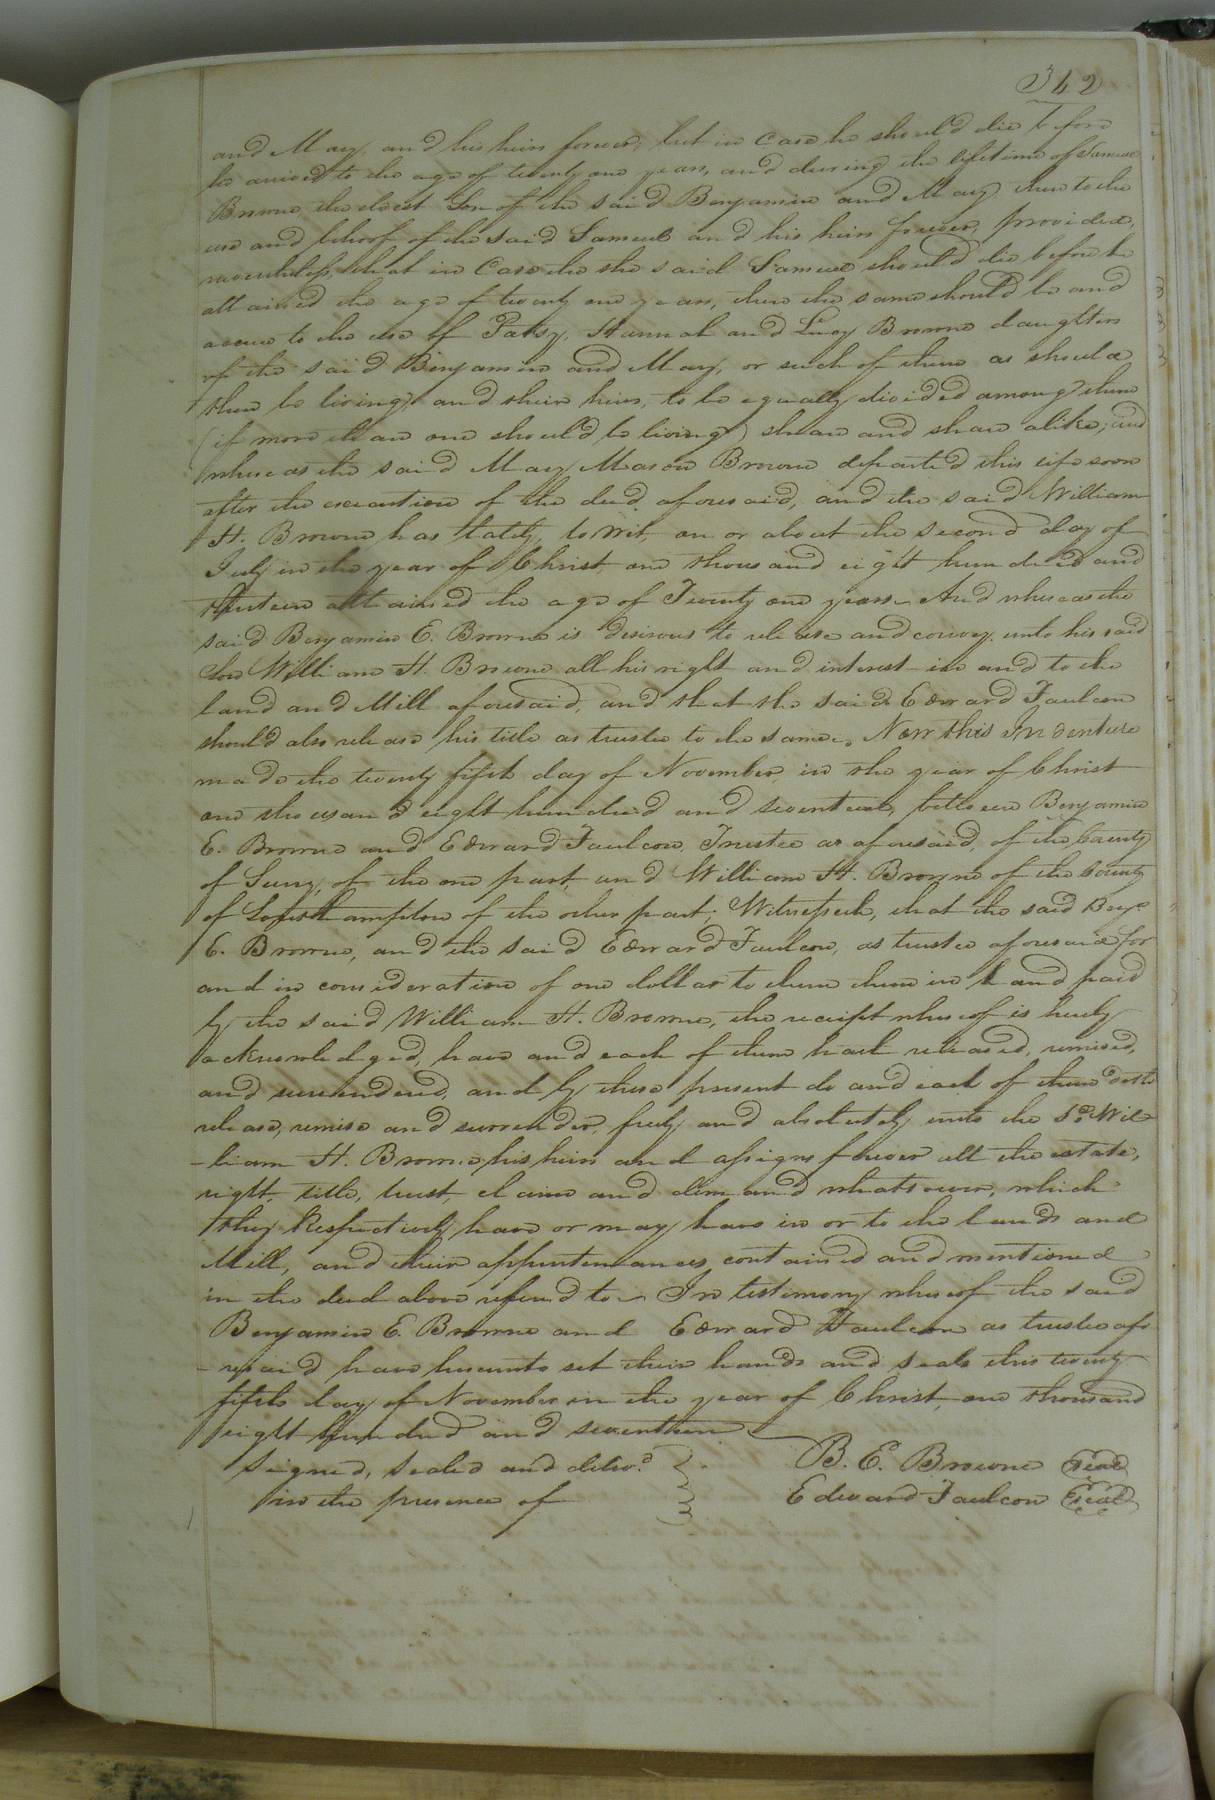 342
and Mary, and his heirs forever, but in Case he should die before
he arrived to the age of twenty one years, and during the lifetime of Samuel
Browne the eldest Son of the said Benjamin and Mary then to the
use and behoof of the said Samuel and his heirs forever, provided,
nevertheless, that in Case the she said Samuel should die before he
attained the age of twenty one years, then the same should be and
accrue to the use of Patsy, Hannah and Lucy Browne daughters
of the said Benjamin and Mary, or such of them as should
then be living, and their heirs, to be equally divided among them
(if more than one should be living) share and share alike; and
whereas the said Mary Mason Browne departed this life soon
after the execution of the deed aforesaid, and the said William
H. Browne has lately, to wit, on or about the second day of
July in the year of Christ one thousand eight hundred and
attained the age of Twenty one years. And whereas the
said Benjamin E. Browne is desirous to release and convey unto his said
Son William H. Browne all his right and interest in and to the
land and Mill aforesaid, and that the said Edward Faulcon
should also release his title as trustee to the same. Now this Indenture
made the twenty fifth day of November in the year of Christ
one thousand eight hundred and seventeen, between Benjamin
E. Browne and Edward Faulcon, Trustee as aforesaid, of the County
of Surry, of the one part, and William H. Browne of the County
of Southampton of the other part; Witnesseth, that the said Benjn
E. Browne, and the said Edward Faulcon, as trustee aforesaid for
and in consideration of one dollar to them them in hand paid
by the said William H. Browne, the receipt whereof is hereby
acknowledged, have and each of them hath released, remised,
and surrendered, and by these present do and each of them doth
release, remise and surrender, freely and absolutely unto the sd Wil
-liam H. Browne, his heirs and assigns forever all the estate,
right, title, trust, claim and demand whatsoever, which
they Respectively have or may have in or to the lands and
Mill, and their appurtenances contained and mentioned
in the deed above referred to. In testimony whereof the said
Benjamin E. Browne and Edward Faulcon as trustee afo
-resaid have hereunto set their hands and seals this twenty
fifth day of November in the year of Christ, one thousand
eight hundred and seventeen
Signed, sealed and delivd B. E. Browne Seal
in the presence of Edward Faulcon Seal